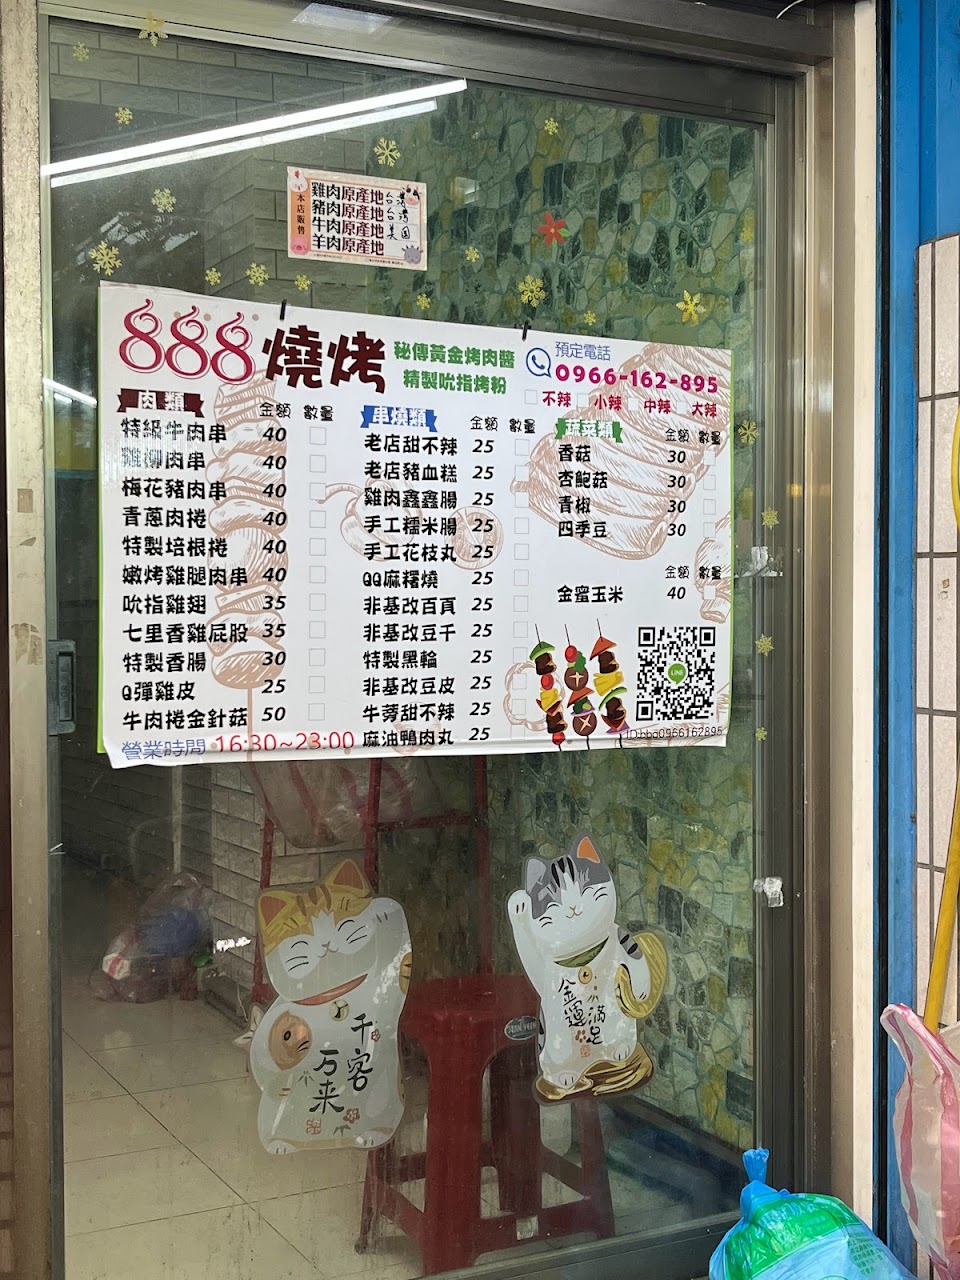 本店販售
雞肉原產地 台灣
豬肉原產地 台灣
牛肉原產地 美國
羊肉原產地
888燒烤
秘傳黃金烤肉醬
精製吮指烤粉
預定電話
0966-162-895
不辣 小辣 中辣 大辣
肉類 金額 數量
特級牛肉串 40
雞柳肉串 40
梅花豬肉串 40
青蔥肉捲 40
特製培根捲 40
嫩烤雞腿肉串 40
吮指雞翅 35
七里香雞屁股 35
特製香腸 30
Q彈雞皮 25
牛肉捲金針菇 50
營業時間 16:30~23:00
串燒類 金額 數量
老店甜不辣 25
老店豬血糕 25
雞肉鑫鑫腸 25
手工糯米腸 25
手工花枝丸 25
QQ麻糬燒 25
非基改百頁 25
非基改豆干 25
特製黑輪 25
非基改豆皮 25
牛蒡甜不辣 25
麻油鴨肉丸 25
蔬菜類 金額 數量
香菇 30
杏鮑菇 30
青椒 30
四季豆 30
金額 數量
金蜜玉米 40
LINE
ID:bbq0966162895
千客
万来
金運
満足